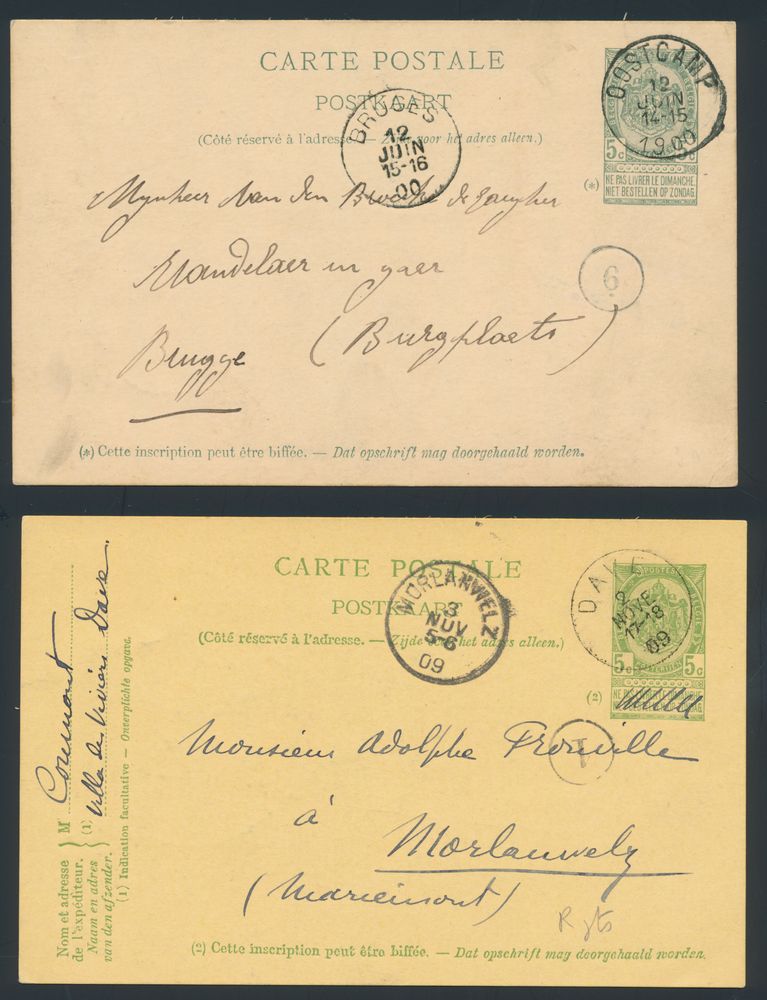 CARTE POSTALE
POSTKAART
(Côté réservé à l'adresse. — Zijde voor het adres alleen.)
OOSTCAMP
12
JUIN
14-15
1900
BRUGES
12
JUIN
15-16
00
5c 5c
(*) NE PAS LIVRER LE DIMANCHE.
NIET BESTELLEN OP ZONDAG.
Mynheer Van den
6
Brugge (Burgplaets)
(*) Cette inscription peut être biffée. — Dat opschrift mag doorgehaald worden.
CARTE POSTALE
POSTKAART
(Côté réservé à l'adresse. — Zijde voor het adres alleen.)
POSTES
DAVE
2
NOVE
17-18
09
MORLANWELZ
3
NOV
5-6
09
5c 5c
(2)
Monsieur Adolphe
1
à
Morlanwelz
(Mariemont)
(2) Cette inscription peut être biffée. — Dat opschrift mag doorgehaald worden.
Nom et adresse
de l'expéditeur.
Naam en adres
van den afzender.
Mr
(1) Villa des Dave.
(1) Indication facultative — Onverplichte opgave.